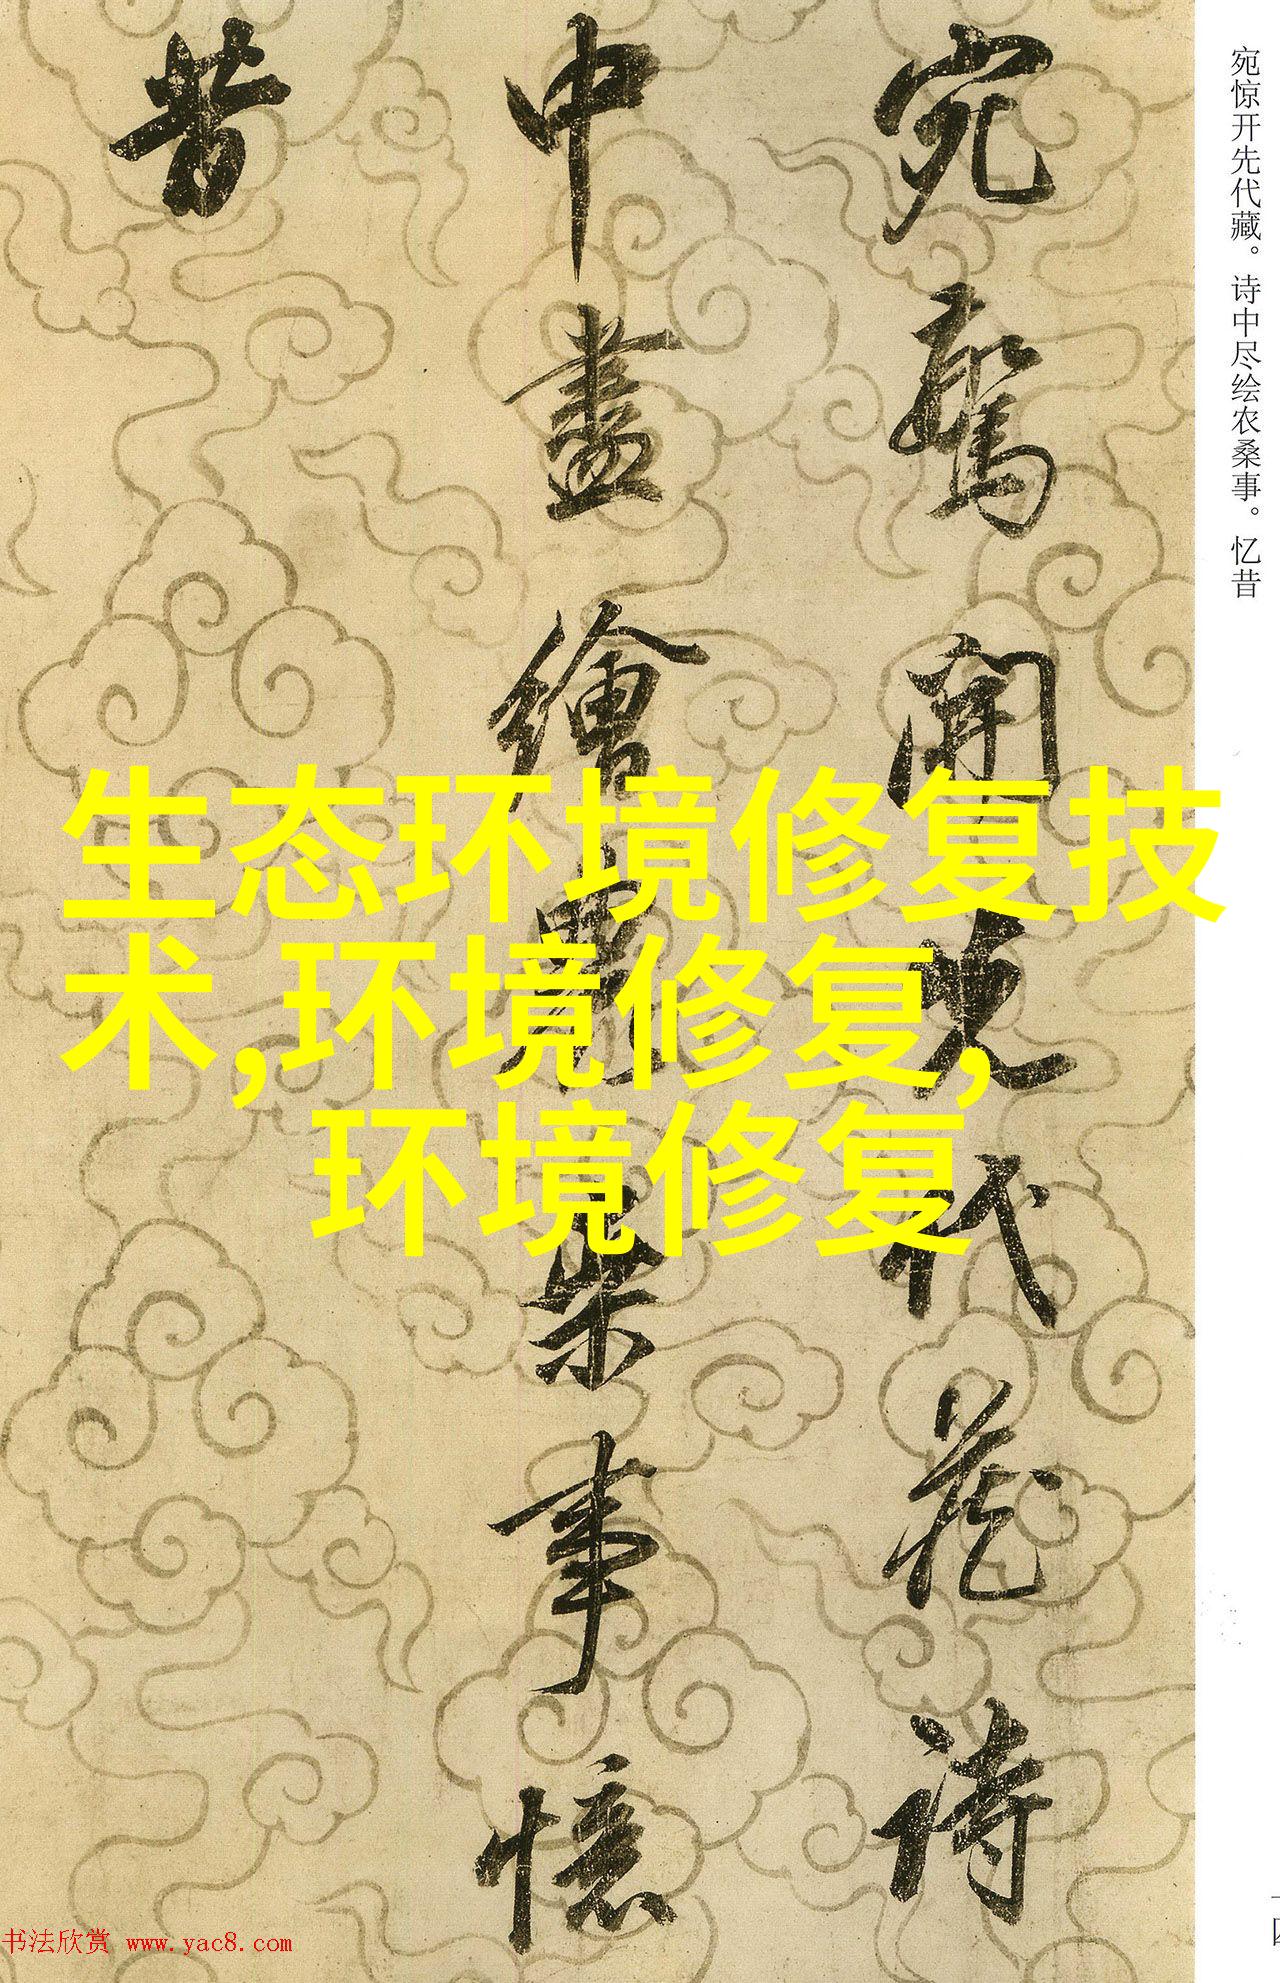 宛驚開先代藏詩
中盡繪農桑事憶
昔
宛惊开先代藏。诗中尽绘农桑事。忆昔
生态环境修复技
术,环境修复,
环境修复
书法欣赏 www.yac8.com